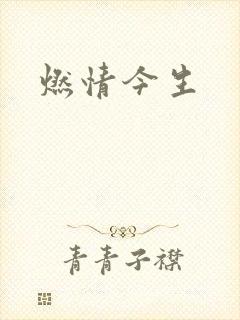 燃情今生
青青子襟